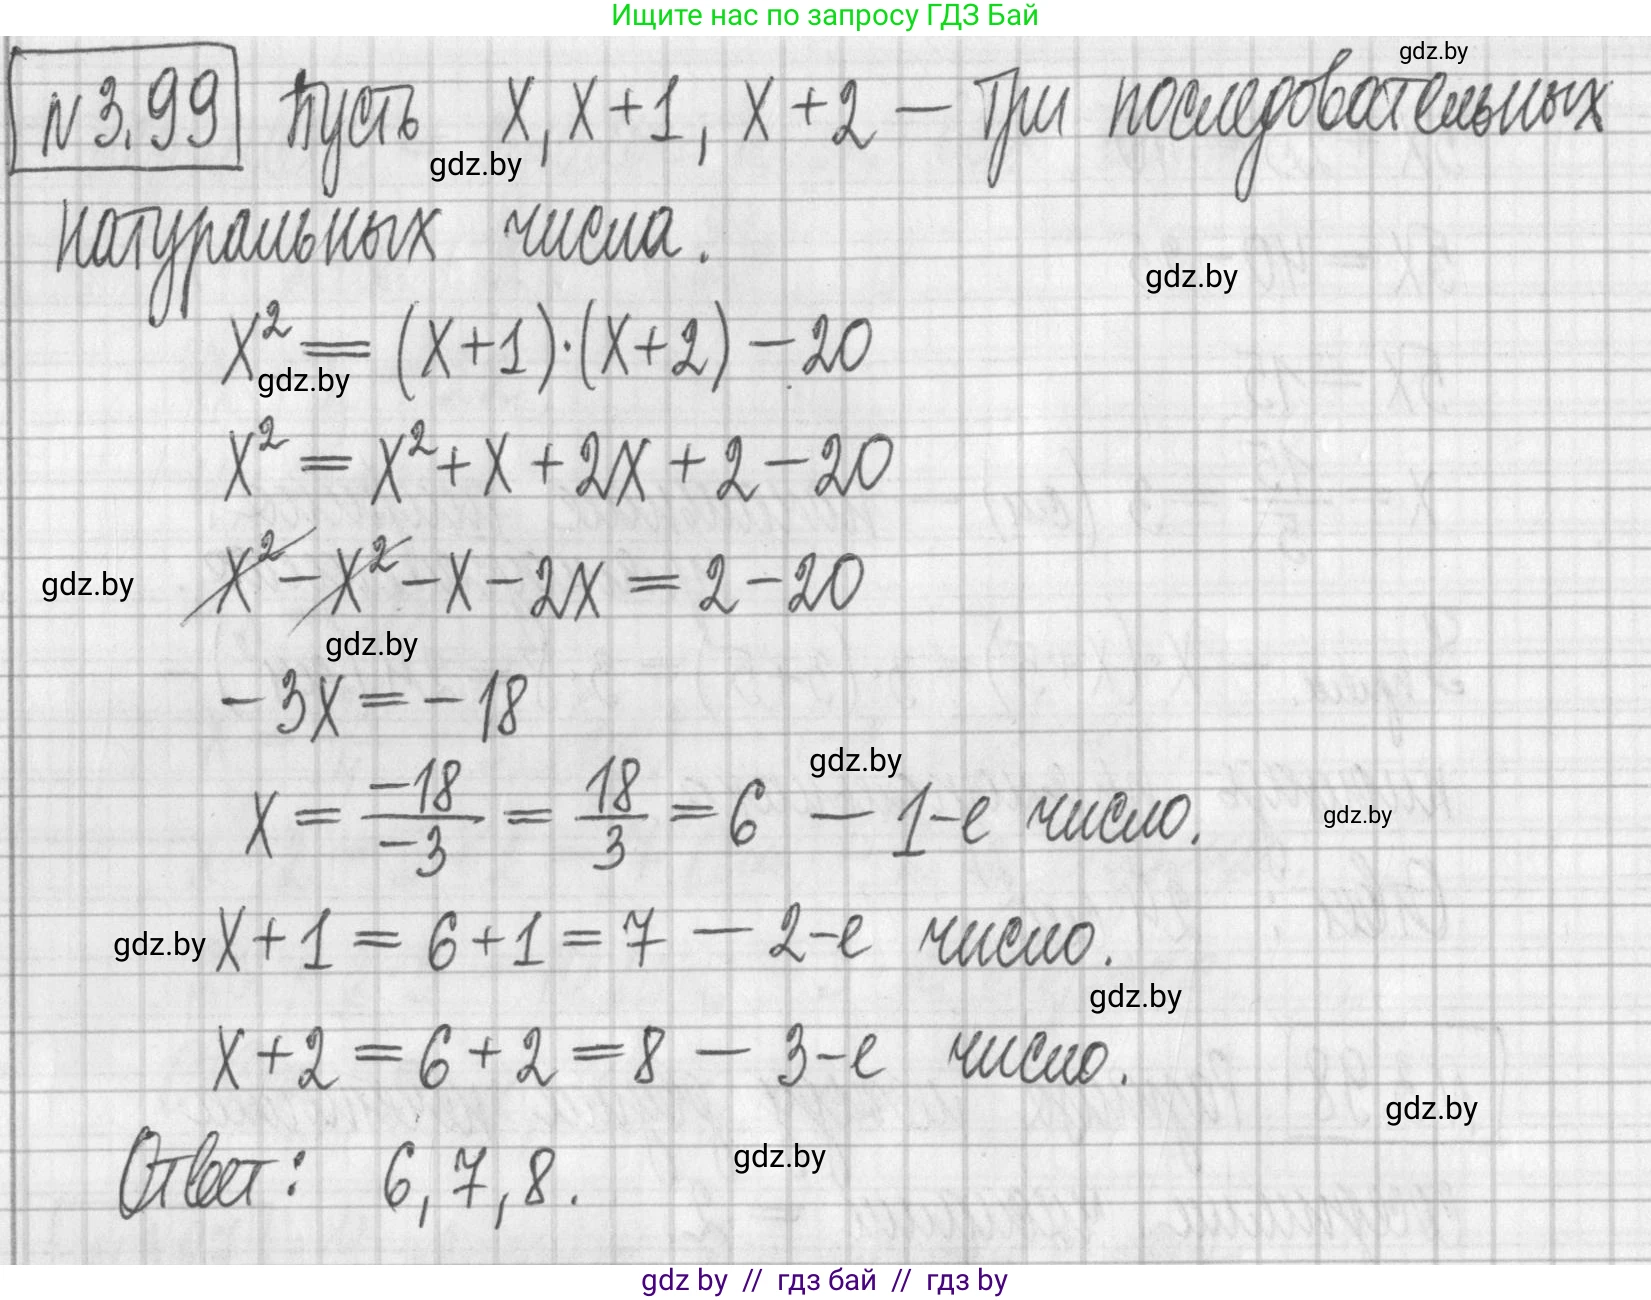 Ищите нас по запросу ГДЗ Бай
gdz.by
N 3.99 Пусть x, x+1, x+2 — три последовательных
gdz.by
натуральных числа.
gdz.by
x² = (x+1)·(x+2) - 20
gdz.by
x² = x² + x + 2x + 2 - 20
gdz.by x² - x² - x - 2x = 2 - 20
gdz.by
-3x = -18
gdz.by
x = -18/-3 = 18/3 = 6 — 1-е число.
gdz.by
gdz.by x+1 = 6+1 = 7 — 2-е число.
gdz.by
x+2 = 6+2 = 8 — 3-е число.
gdz.by
gdz.by
Ответ: 6, 7, 8.
gdz by // гдз бай // гдз by